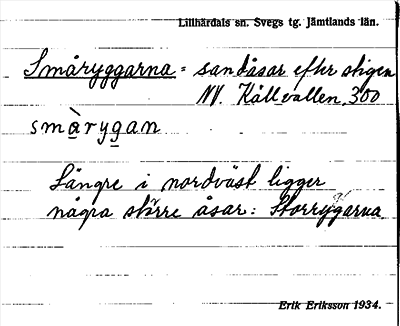 Lillhärdals sn. Svegs tg. Jämtlands län.
Småryggarna = sandåsar efter stigen
NV. Källvallen, 300
smàrygan
Längre i nordväst ligger
några större åsar: Storryggarna.
Erik Eriksson 1934.